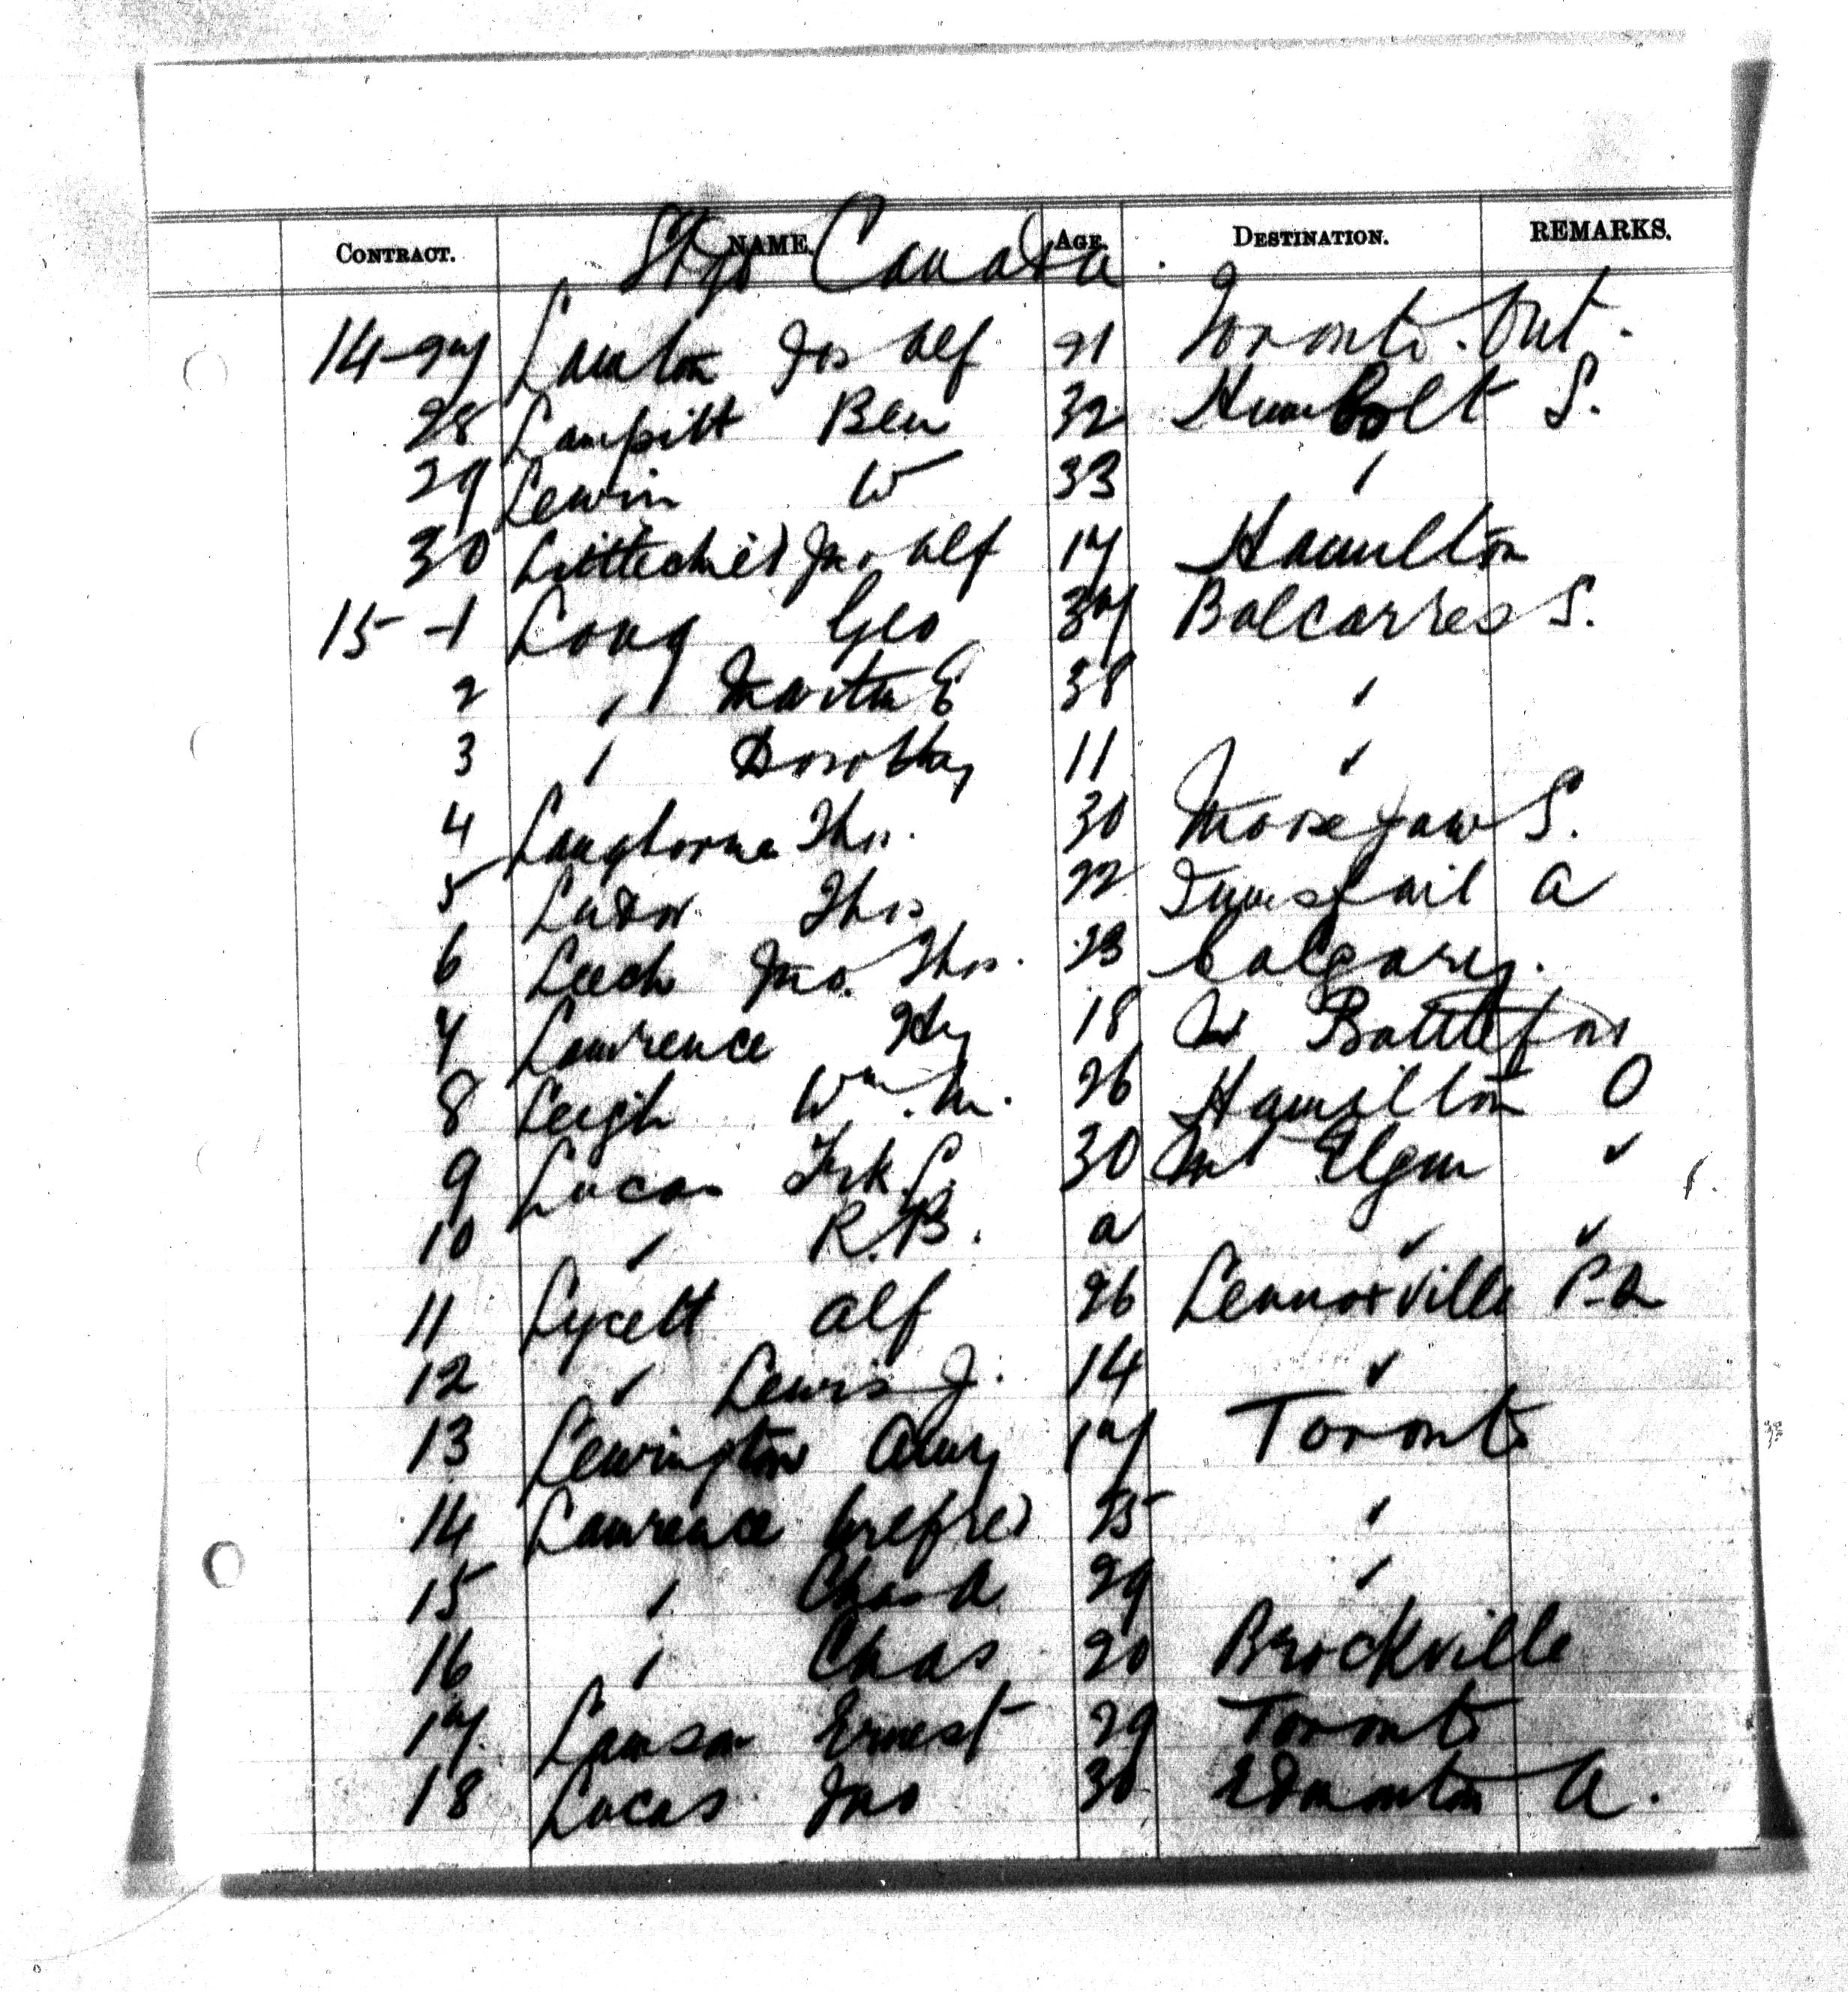 CONTRACT. NAME. AGE. DESTINATION. REMARKS.
Canada.
14-27 Jos Alf 21 Toronto. Ont.
28 Lampitt Ben 32 Humbolt S.
29 Lewin W 33 "
30 Littlechild Jno Alf 17 Hamilton
15-1 Long Geo 37 Balcarres S.
2 " Martha E 38 "
3 " Dorothy 11 "
4 Langhorne Thos. 30 Moosejaw S.
5 Thos 22 Innisfail A
6 Leech Jno. Thos. 23 Calgary.
7 Lawrence Hy 18 N Battleford
8 Leigh Wm. M. 26 Hamilton O
9 Lucas Frk. C. 30 Mt Elgin "
10 " R.B. a " "
11 Lycett Alf 26 Lennoxville P.Q
12 " Lewis J. 14 "
13 Lewington Amy 17 Toronto
14 Lawrence 25 "
15 " Chas A 29 "
16 " Chas 20 Brockville
17. Lawson Ernest 29 Toronto
18 Lucas Jno 30 Edmonton A.